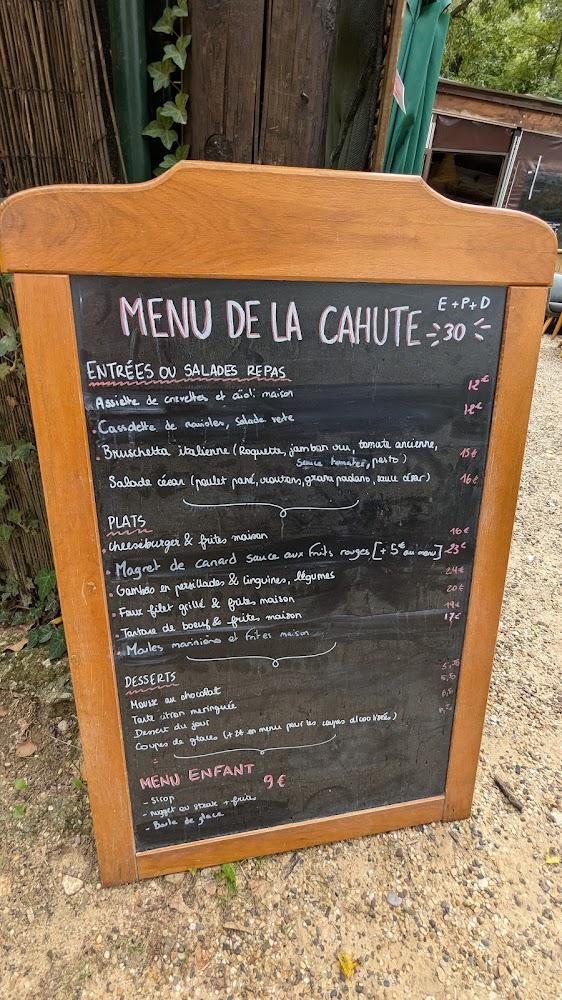 E + P + D
MENU DE LA CAHUTE 30
ENTRÉES OU SALADES REPAS
Assiette de crevettes et aïoli maison 12€
Cassolette de ravioles, salade verte 12€
Bruschetta italienne (Roquette, jambon cru, tomate ancienne, 15€
sauce tomates, pesto)
Salade césar (poulet pané, croutons, grana padano, sauce césar) 16€
PLATS
Cheeseburger & frites maison 16€
Magret de canard sauce aux fruits rouges [+ 5€ au menu] 23€
Gambas en persillades & linguines, légumes 24€
Faux filet grillé & frites maison 20€
Tartare de boeuf & frites maison 19€
Moules marinières et frites maison 17€
DESSERTS
Mousse au chocolat
Tarte citron meringuée
Dessert du jour
Coupes de glaces (+ 2€ en menu pour les coupes alcoolisées)
MENU ENFANT 9€
- sirop
- nugget ou steak + frites
- Boule de glace